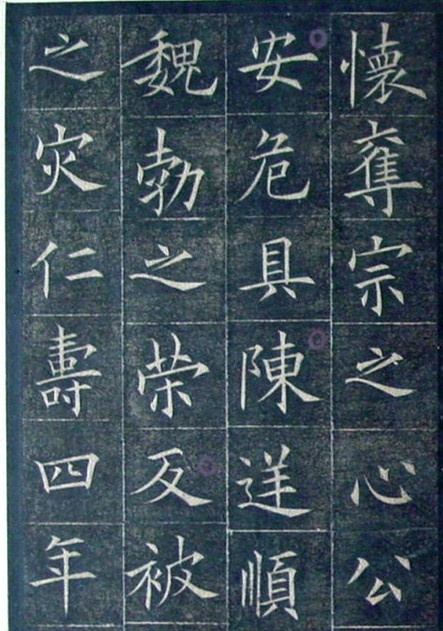 懷奪宗之心公
安危具陳逆順
魏勃之荣反被
之灾仁壽四年